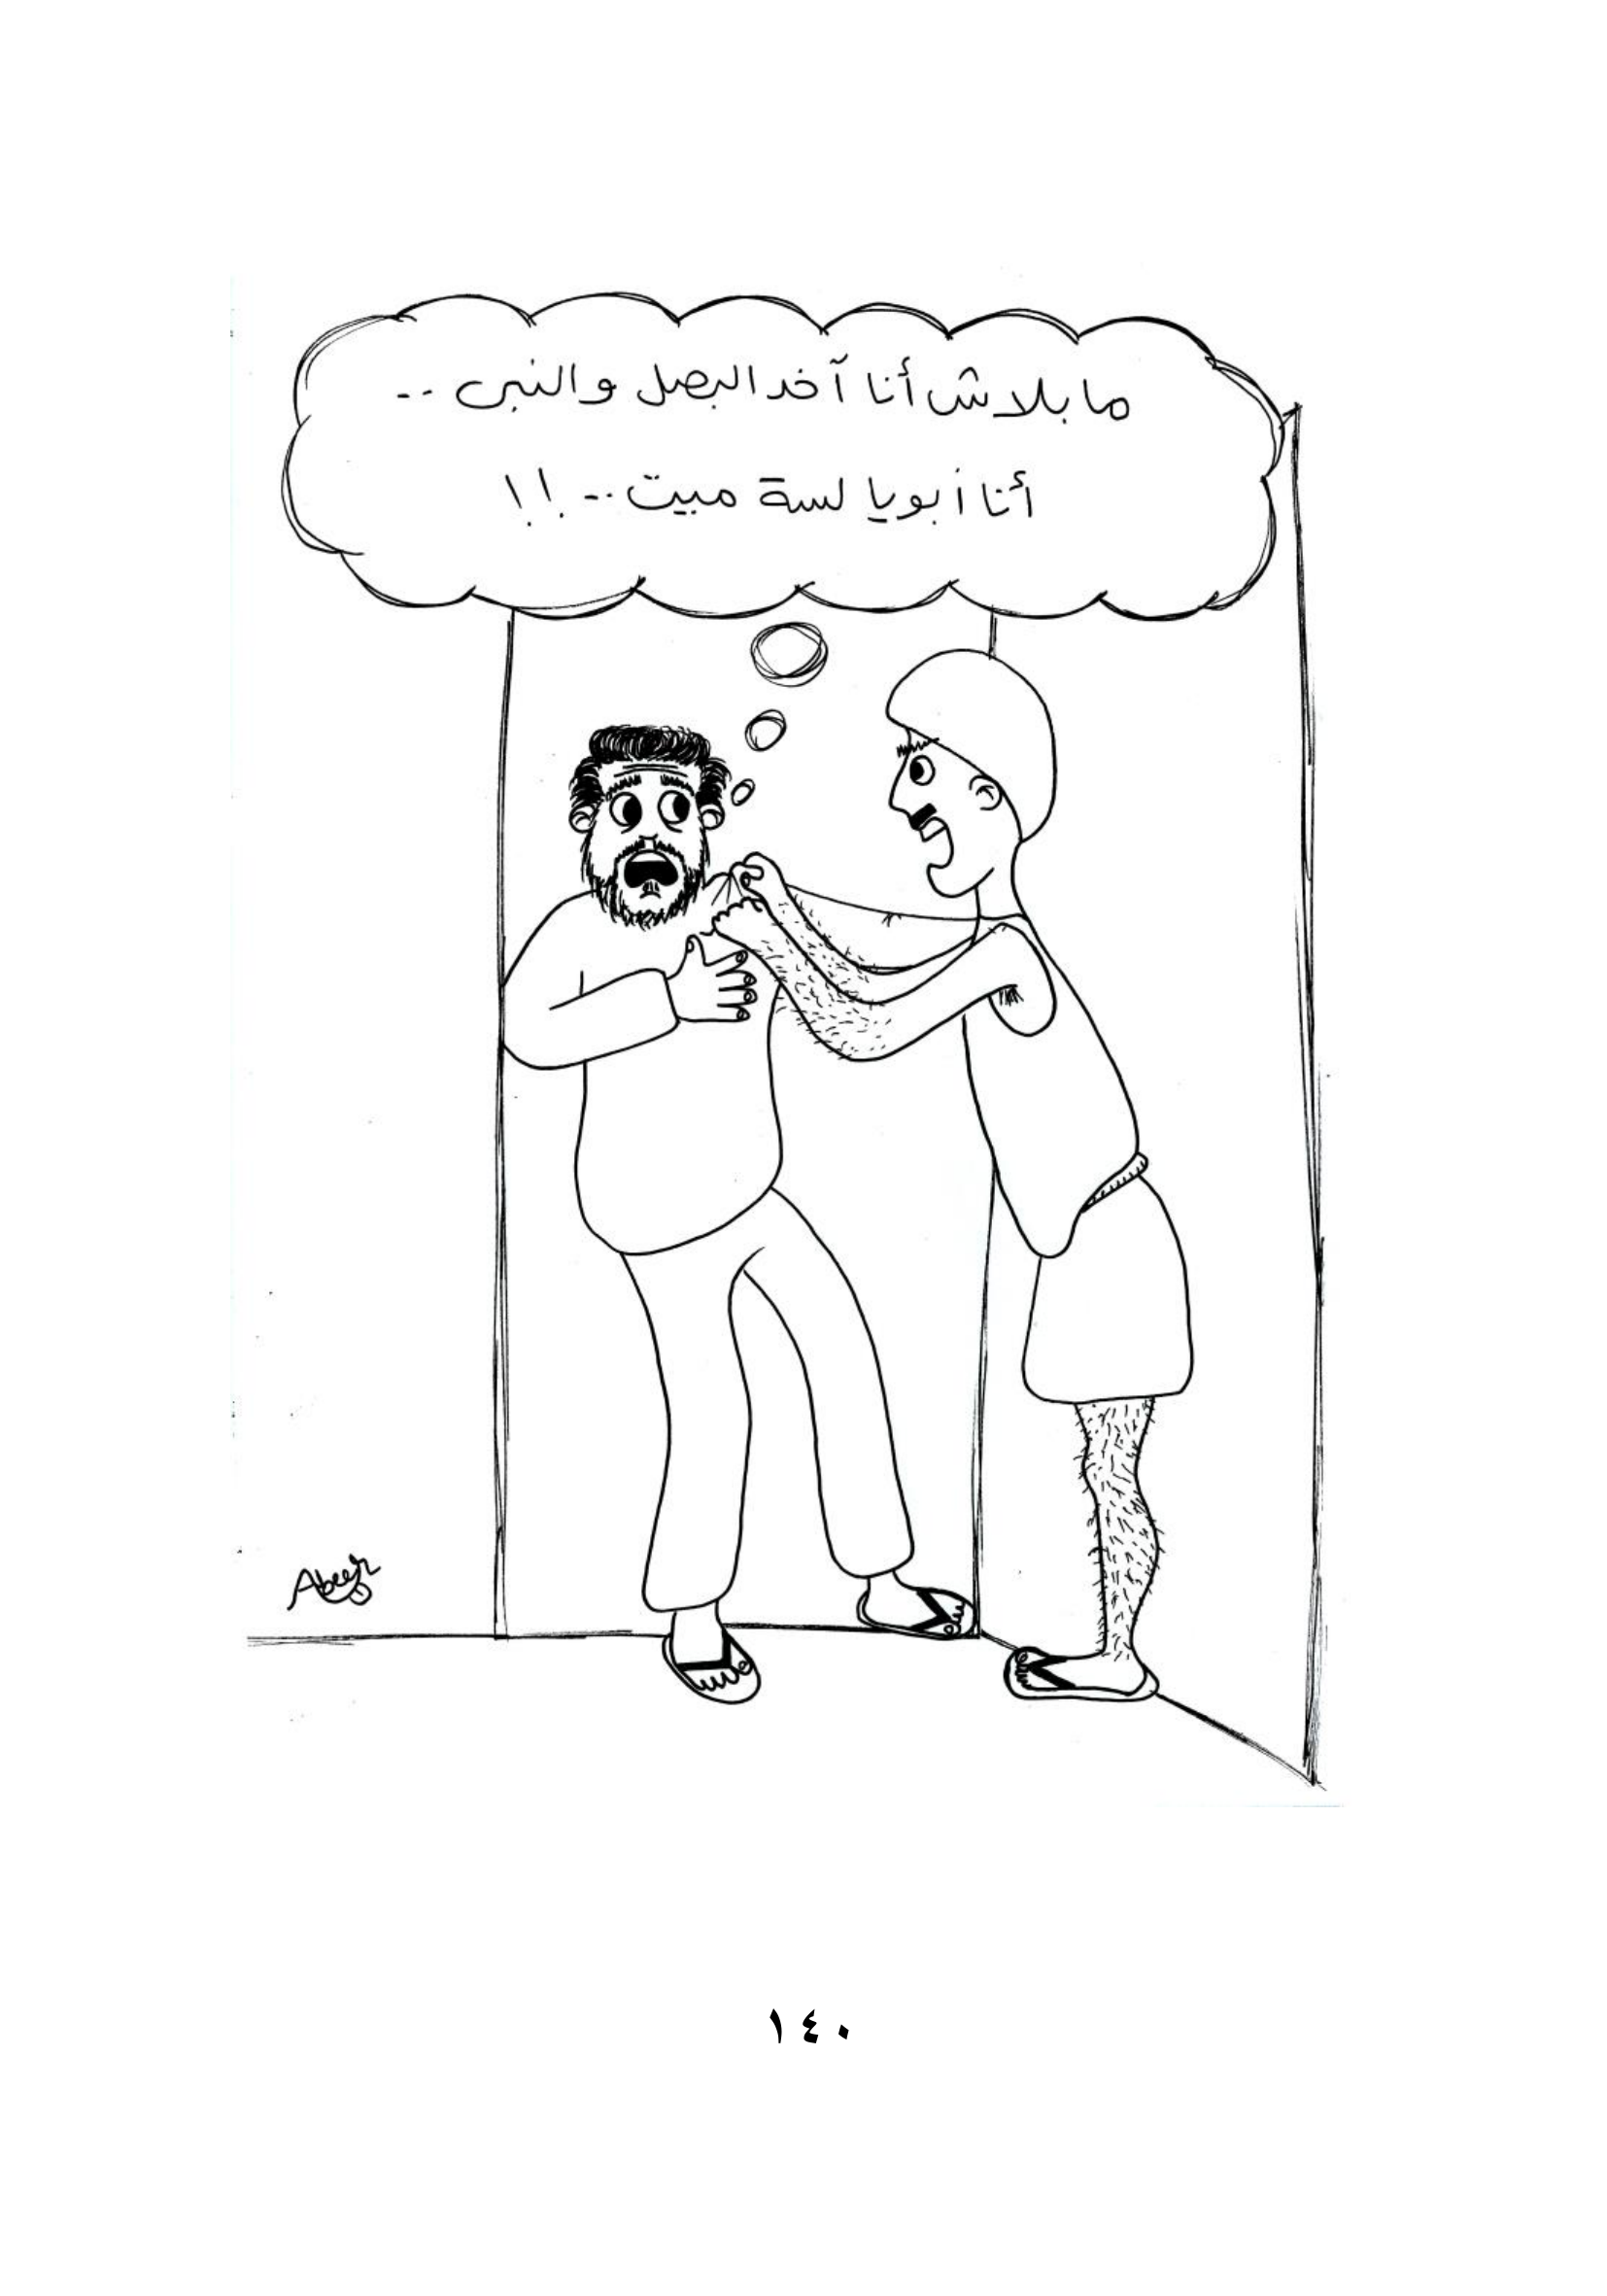 ما بلاش أنا آخد البصل والنبى ..
أنا أبويا لسة ميت .. !!
Abeer
١٤٠